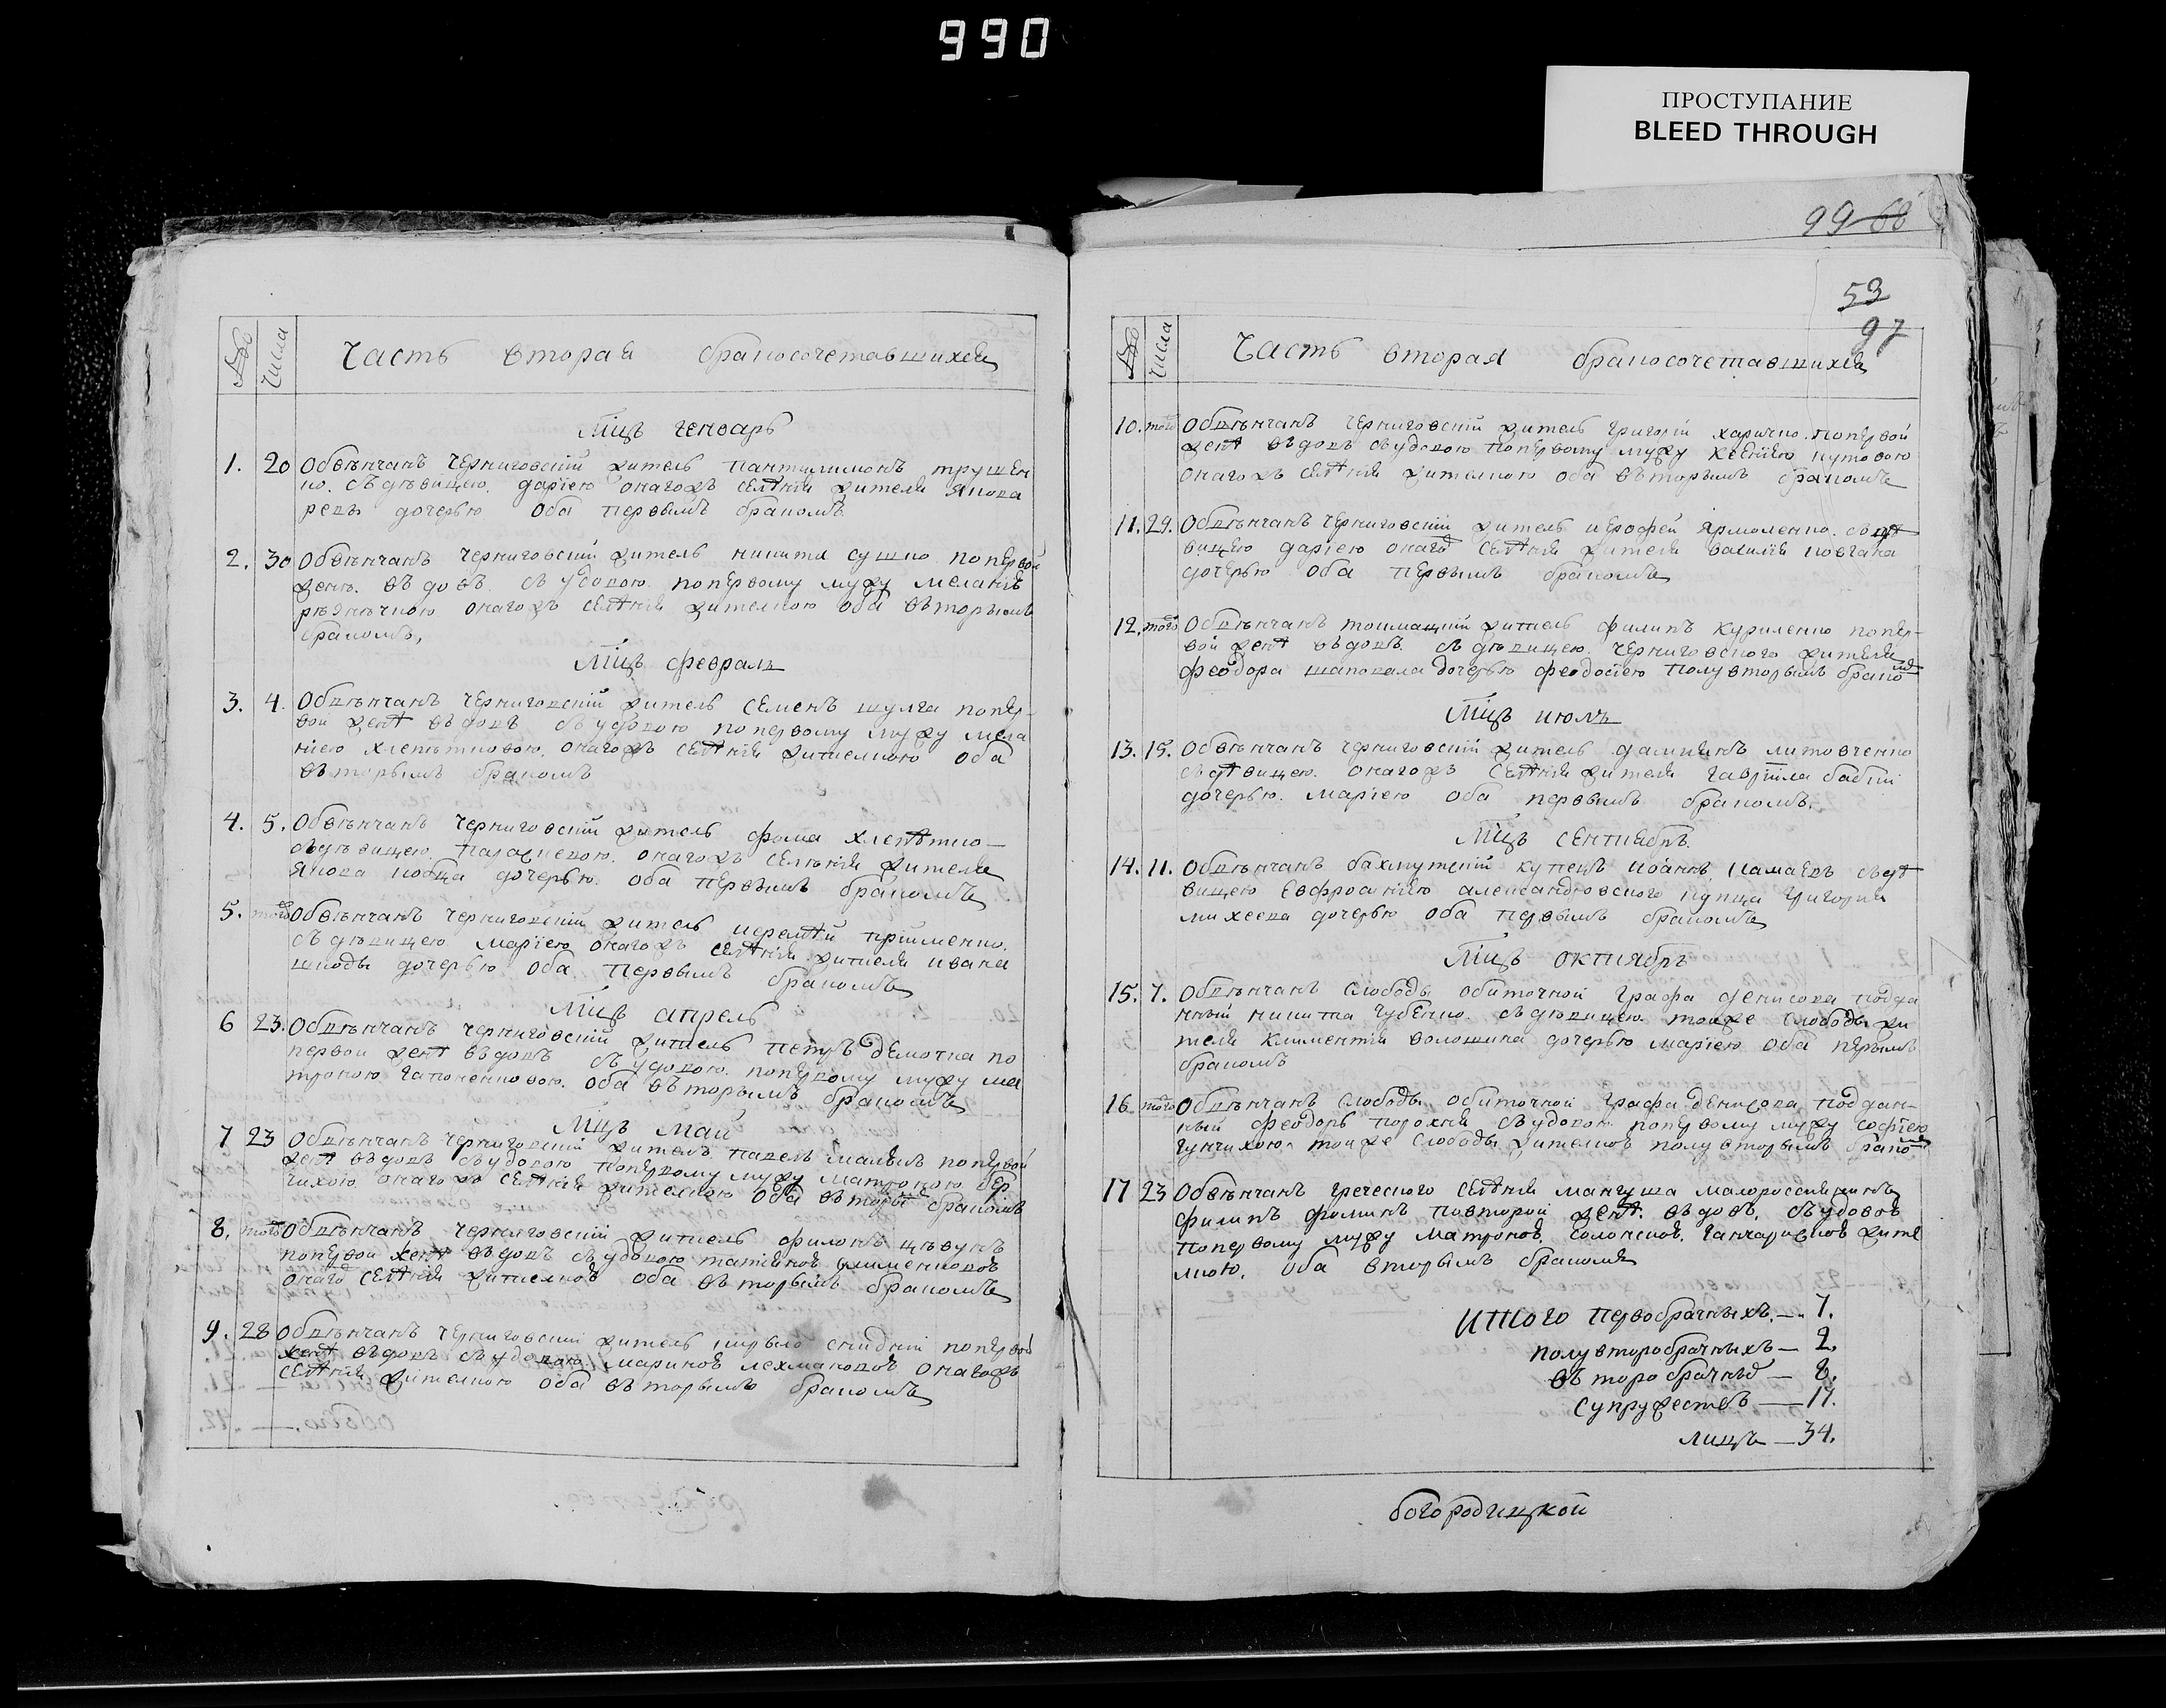 990
ПРОСТУПАНИЕ
BLEED THROUGH
№
числа
Часть вторая бракосочетавшихся
Мцъ генварь
1. 20 Обвѣнчанъ черниговскій житель пантилимонъ трушен
ко. съ дѣвицею дарїею онагожъ селѣнія жителя Якова
дочерью оба первымъ бракомъ
2. 30 Обвѣнчанъ черниговскій житель никита сушко по первой
женѣ въдовъ съ удовою по первому мужу
онагожъ селѣнія жителкою оба въторымъ
бракомъ,
Мцъ февраль
3. 4. Обвѣнчанъ черниговскій житель семенъ шулга по пер-
вой женѣ въдовъ съ удовою по первому мужу мела
ніею онагожъ селѣнія жителкою оба
въторымъ бракомъ
4. 5. Обвѣнчанъ черниговскій житель фома
съ дѣвицею онагожъ селѣнія жителя
Якова дочерью. оба первымъ бракомъ
5. того Обвѣнчанъ черниговскій житель
съ дѣвицею марїею онагожъ селѣнія жителя ивана
шкоды дочерью оба первымъ бракомъ
Мцъ апрель
6 23. Обвѣнчанъ черниговскій житель петръ демочка по
первой женѣ въдовъ съ удовою по первому мужу ма
троною гапоненковою. оба въторымъ бракомъ
Мцъ май
7 23 Обвѣнчанъ черниговскій житель павелъ по первой
женѣ въдовъ съ удовою по первому мужу матроною
онагожъ селѣнія жителкою оба въторым бракомъ
8. того Обвѣнчанъ черниговскій житель филонъ
по первой женѣ въдовъ съ удовою
онаго селѣнія жителкою оба въторымъ бракомъ
9. 28 Обвѣнчанъ черниговскій житель по первой
женѣ въдовъ съ удовою онагожъ
селѣнія жителкою оба въторымъ бракомъ
99 68
53
97
№
числа
Часть вторая бракосочетавшихся
10. того Обвѣнчанъ черниговскій житель григорій харичко по первой
женѣ въдовъ съ удовою по первому мужу
онагожъ селѣнія жителкою оба въторымъ бракомъ
11. 29. Обвѣнчанъ черниговскій житель иерофей ярмоленко съ дѣ
вицею дарїею онаго селѣнія жителя
дочерью оба первымъ бракомъ
12. того Обвѣнчанъ житель филипъ куриленко по пер-
вой женѣ въдовъ съ дѣвицею черниговского жителя
феодора шаповала дочерью феодосїею полувторымъ бракомъ
Мцъ июль
13. 15. Обвѣнчанъ черниговскій житель литовченко
съ дѣвицею онагожъ селѣнія жителя гаврїила бабій
дочерью марїею оба первымъ бракомъ.
Мцъ сентиябрь
14. 11. Обвѣнчанъ бахмутскій купецъ иоаннъ съ дѣ
вицею александровского купца григорія
михеева дочерью оба первымъ бракомъ
Мцъ октиябрь
15. 7. Обвѣнчанъ слободы обиточной графа денисова подда
нный никита губенко съ дѣвицею тоиже слободы жи
теля климентія волошина дочерью марїею оба первымъ
бракомъ
16 того Обвѣнчанъ слободы обиточной графа денисова поддан-
ный феодоръ съ удовою по первому мужу софїею
тоиже слободы полувторымъ бракомъ
17 23 Обвѣнчанъ греческого селѣнія мангуша малороссиянинъ
филипъ фоминъ по второй женѣ въдовъ, съ удовою
по первому мужу жите
лкою. оба вторымъ бракомъ
Итого первобрачныхъ — 7.
полувторобрачныхъ — 2.
въторобрачных — 8.
супружествъ — 17.
лицъ — 34.
богородицкой